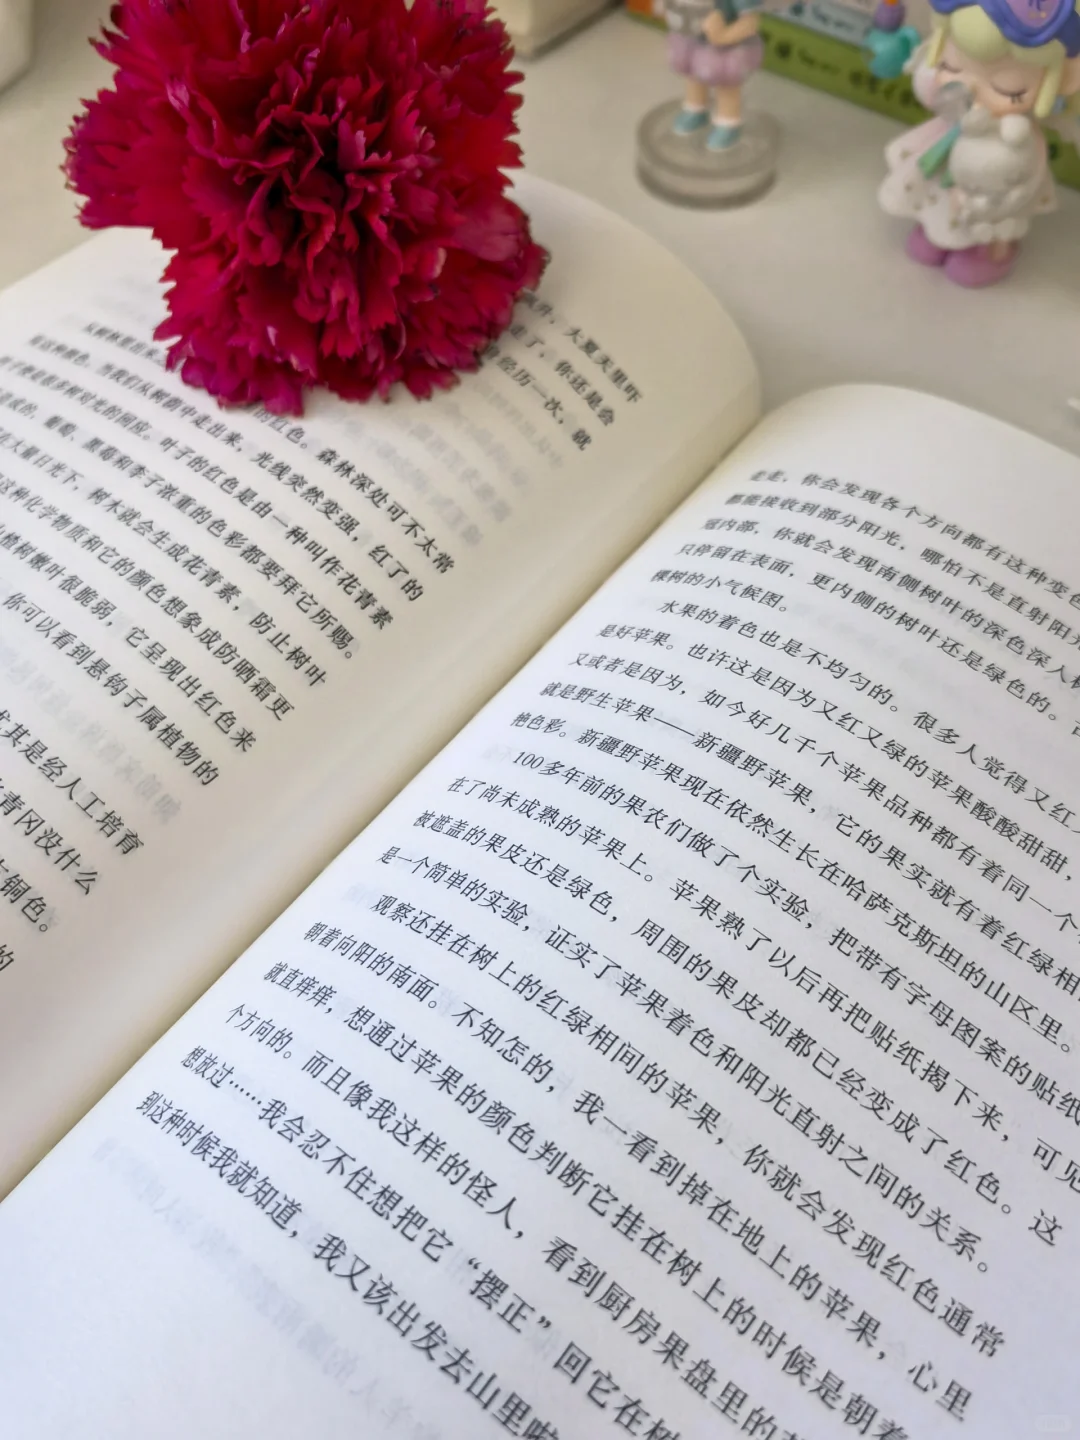 飙升，大夏天里吓
走了，你还是会
经历一次，就
从树林里看来
的红色。森林深处可不太常
见这种颜色，当我们从树荫中走出来，光线突然变强，红了的
叶子便是很多树对光的回应。叶子的红色是由一种叫作花青素
造成的，葡萄、黑莓和李子浓重的色彩都要拜它所赐。
在大量日光下，树木就会生成花青素，防止树叶
这种化学物质和它的颜色想象成防晒霜更
山楂树嫩叶很脆弱，它呈现出红色来
你可以看到悬钩子属植物的
尤其是经人工培育
青冈没什么
铜色。
的
走走，你会发现各个方向都有这种变色
都能接收到部分阳光，哪怕不是直射阳光
冠内部，你就会发现南侧树叶的深色深入树
只停留在表面，更内侧的树叶还是绿色的。
棵树的小气候图。
水果的着色也是不均匀的。很多人觉得又红又
是好苹果。也许这是因为又红又绿的苹果酸酸甜甜，
又或者是因为，如今好几千个苹果品种都有着同一个
就是野生苹果——新疆野苹果，它的果实就有着红绿相
艳色彩。新疆野苹果现在依然生长在哈萨克斯坦的山区里。
100多年前的果农们做了个实验，把带有字母图案的贴纸
在了尚未成熟的苹果上。苹果熟了以后再把贴纸揭下来，可见
被遮盖的果皮还是绿色，周围的果皮却都已经变成了红色。这
是一个简单的实验，证实了苹果着色和阳光直射之间的关系。
观察还挂在树上的红绿相间的苹果，你就会发现红色通常
朝着向阳的南面。不知怎的，我一看到掉在地上的苹果，心里
就直痒痒，想通过苹果的颜色判断它挂在树上的时候是朝着
个方向的。而且像我这样的怪人，看到厨房果盘里的苹
想放过……我会忍不住想把它“摆正”回它在树
到这种时候我就知道，我又该出发去山里啦